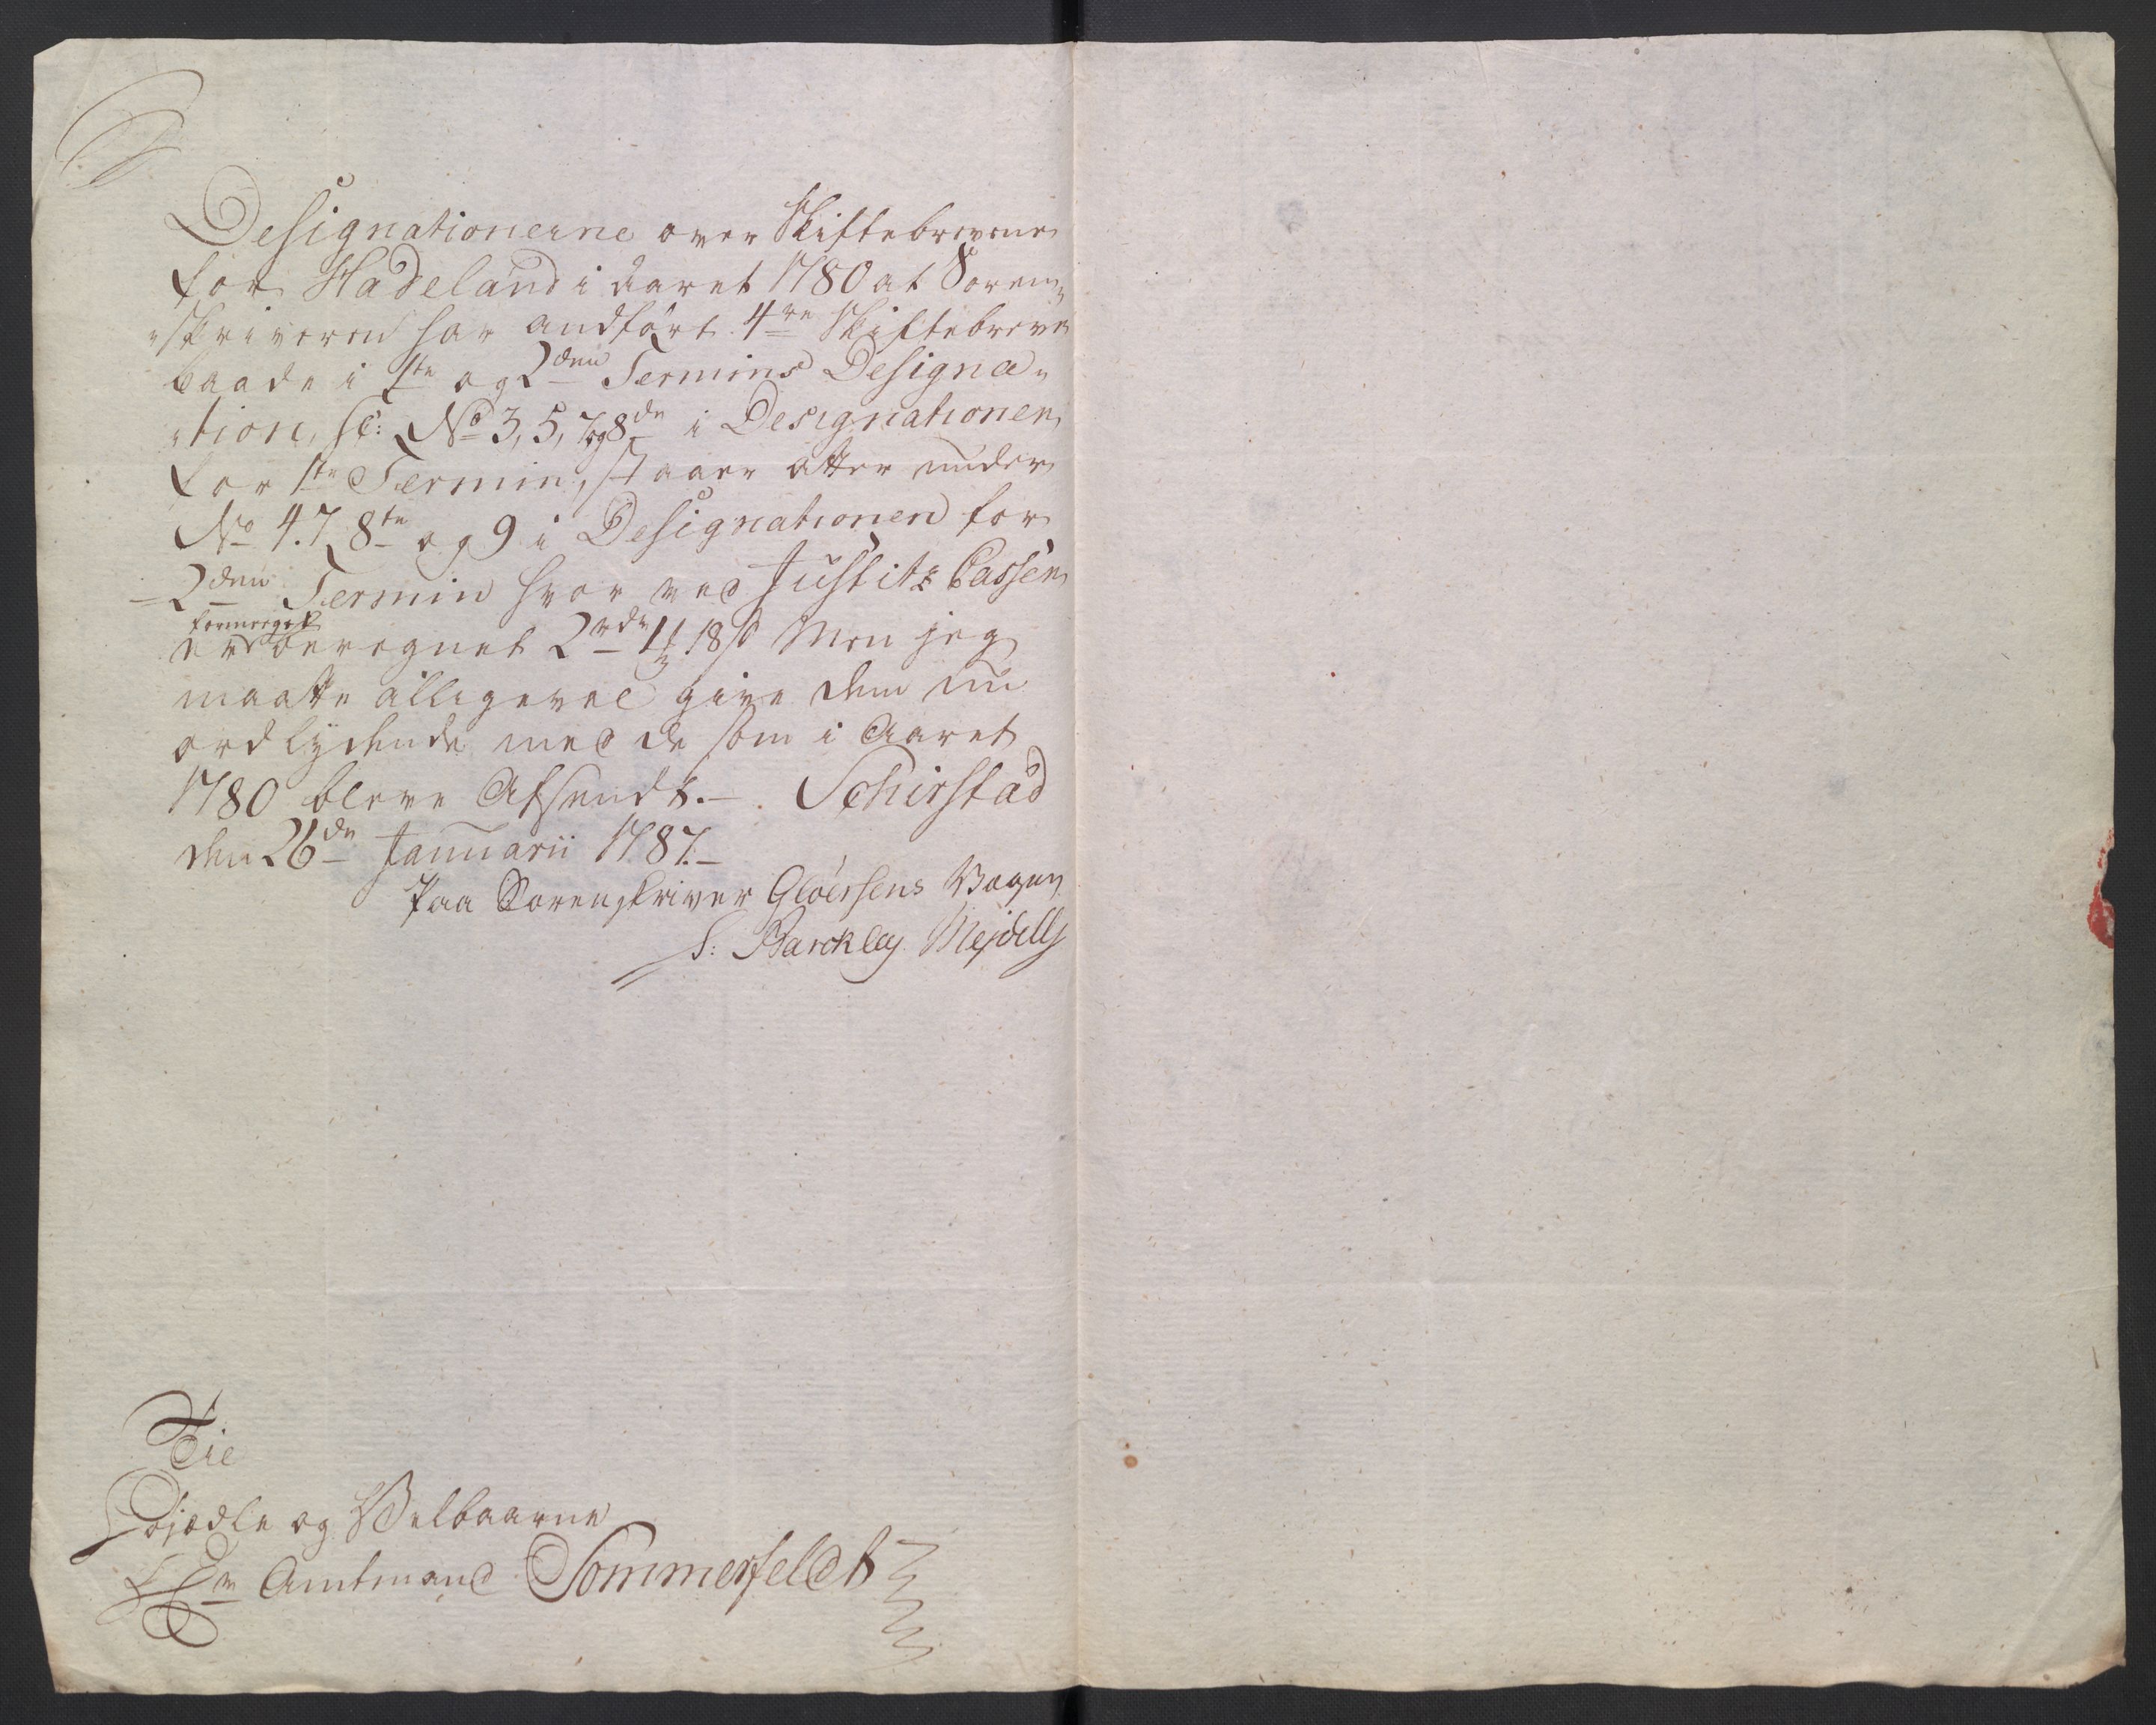 Designationerne over Skiftebrevene
for Hadeland i Aaret 1780 at Soren„
„skriveren har andført 4re Skiftebreve
baade i 1te og 2den Termins Designa„
„tion, sc: No 3, 5, 7 og 8de i Designationen
for 1te Termin, staaer atter under
No 4. 7. 8te og 9 i Designationen for
2den Termin hvor ved Justitz Cassen
formeget
er beregnet 2rdr 1 18 s Men jeg
maatte alligevel give dem nu
ordlydende med de som i Aaret
1780 bleve Afsendt. – Schirstad
den 26de Januarii 1787. –
Paa Sorenskriver Gløersens Vegne
S: Barckley Mejdell
Til
Højædle og Velbaarne
Hr Amtmand Sommerfeldt